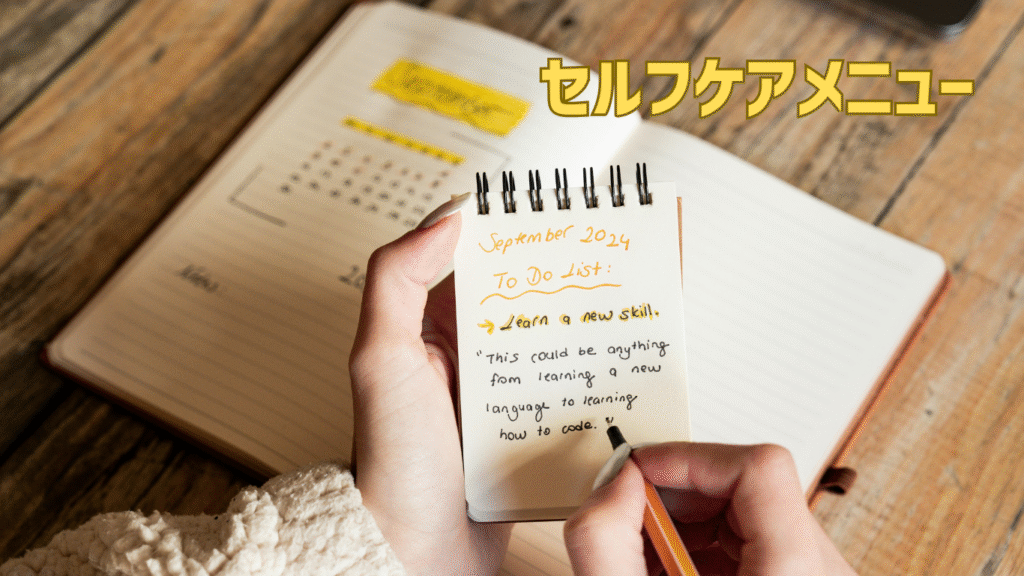 セルフケアメニュー
September 2024
To Do List:
→ Learn a new skill.
"This could be anything
from learning a new
language to learning
how to code."